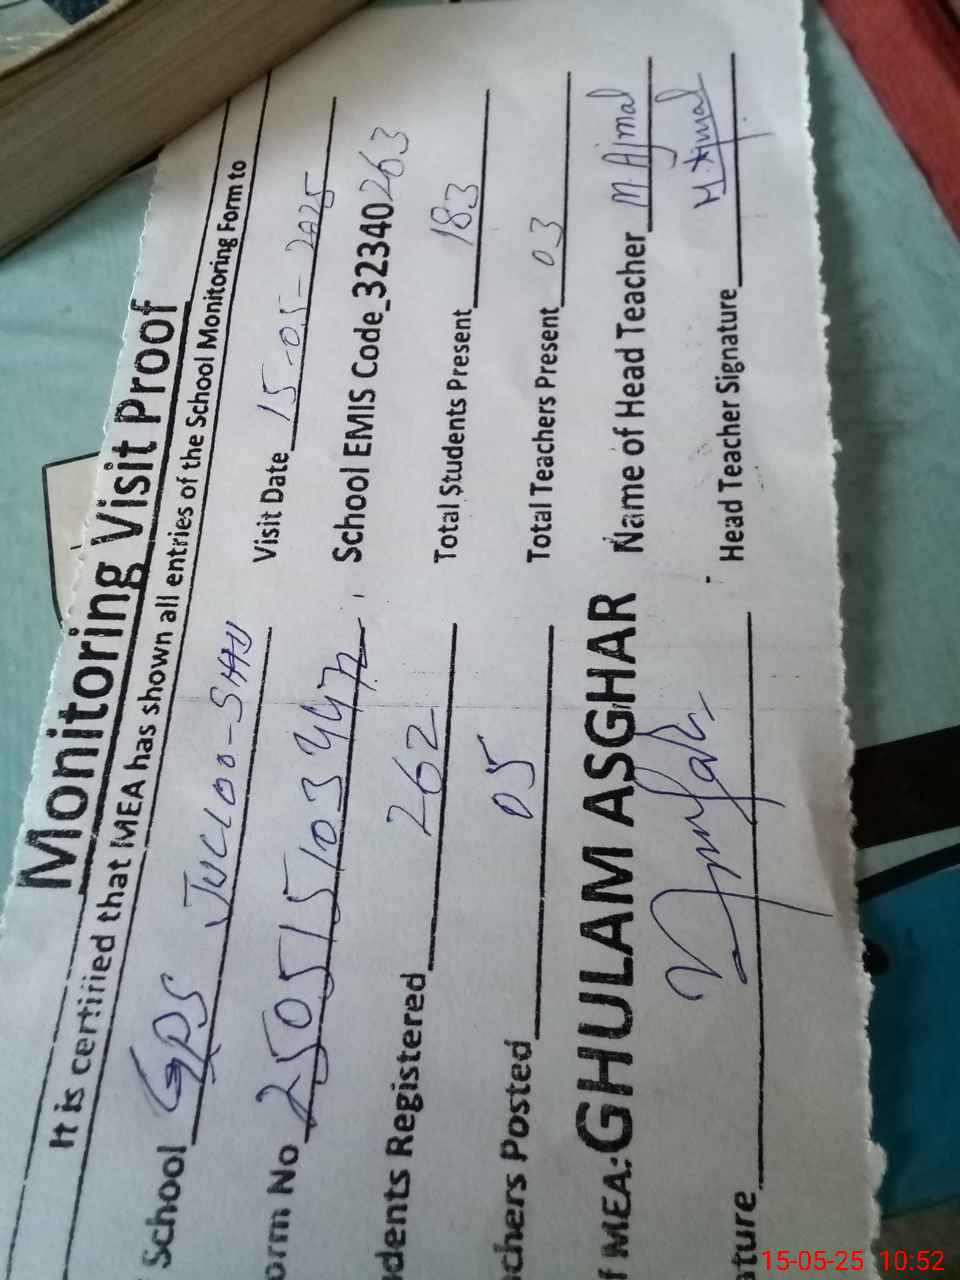 Monitoring Visit Proof
It is certified that MEA has shown all entries of the School Monitoring Form to
School GPS Visit Date 15-05-2025
orm No School EMIS Code 32340263
dents Registered 262 Total Students Present 183
chers Posted 05 Total Teachers Present 03
f MEA: GHULAM ASGHAR Name of Head Teacher M Ajmal
ture Head Teacher Signature M. Ajmal
15-05-25 10:52